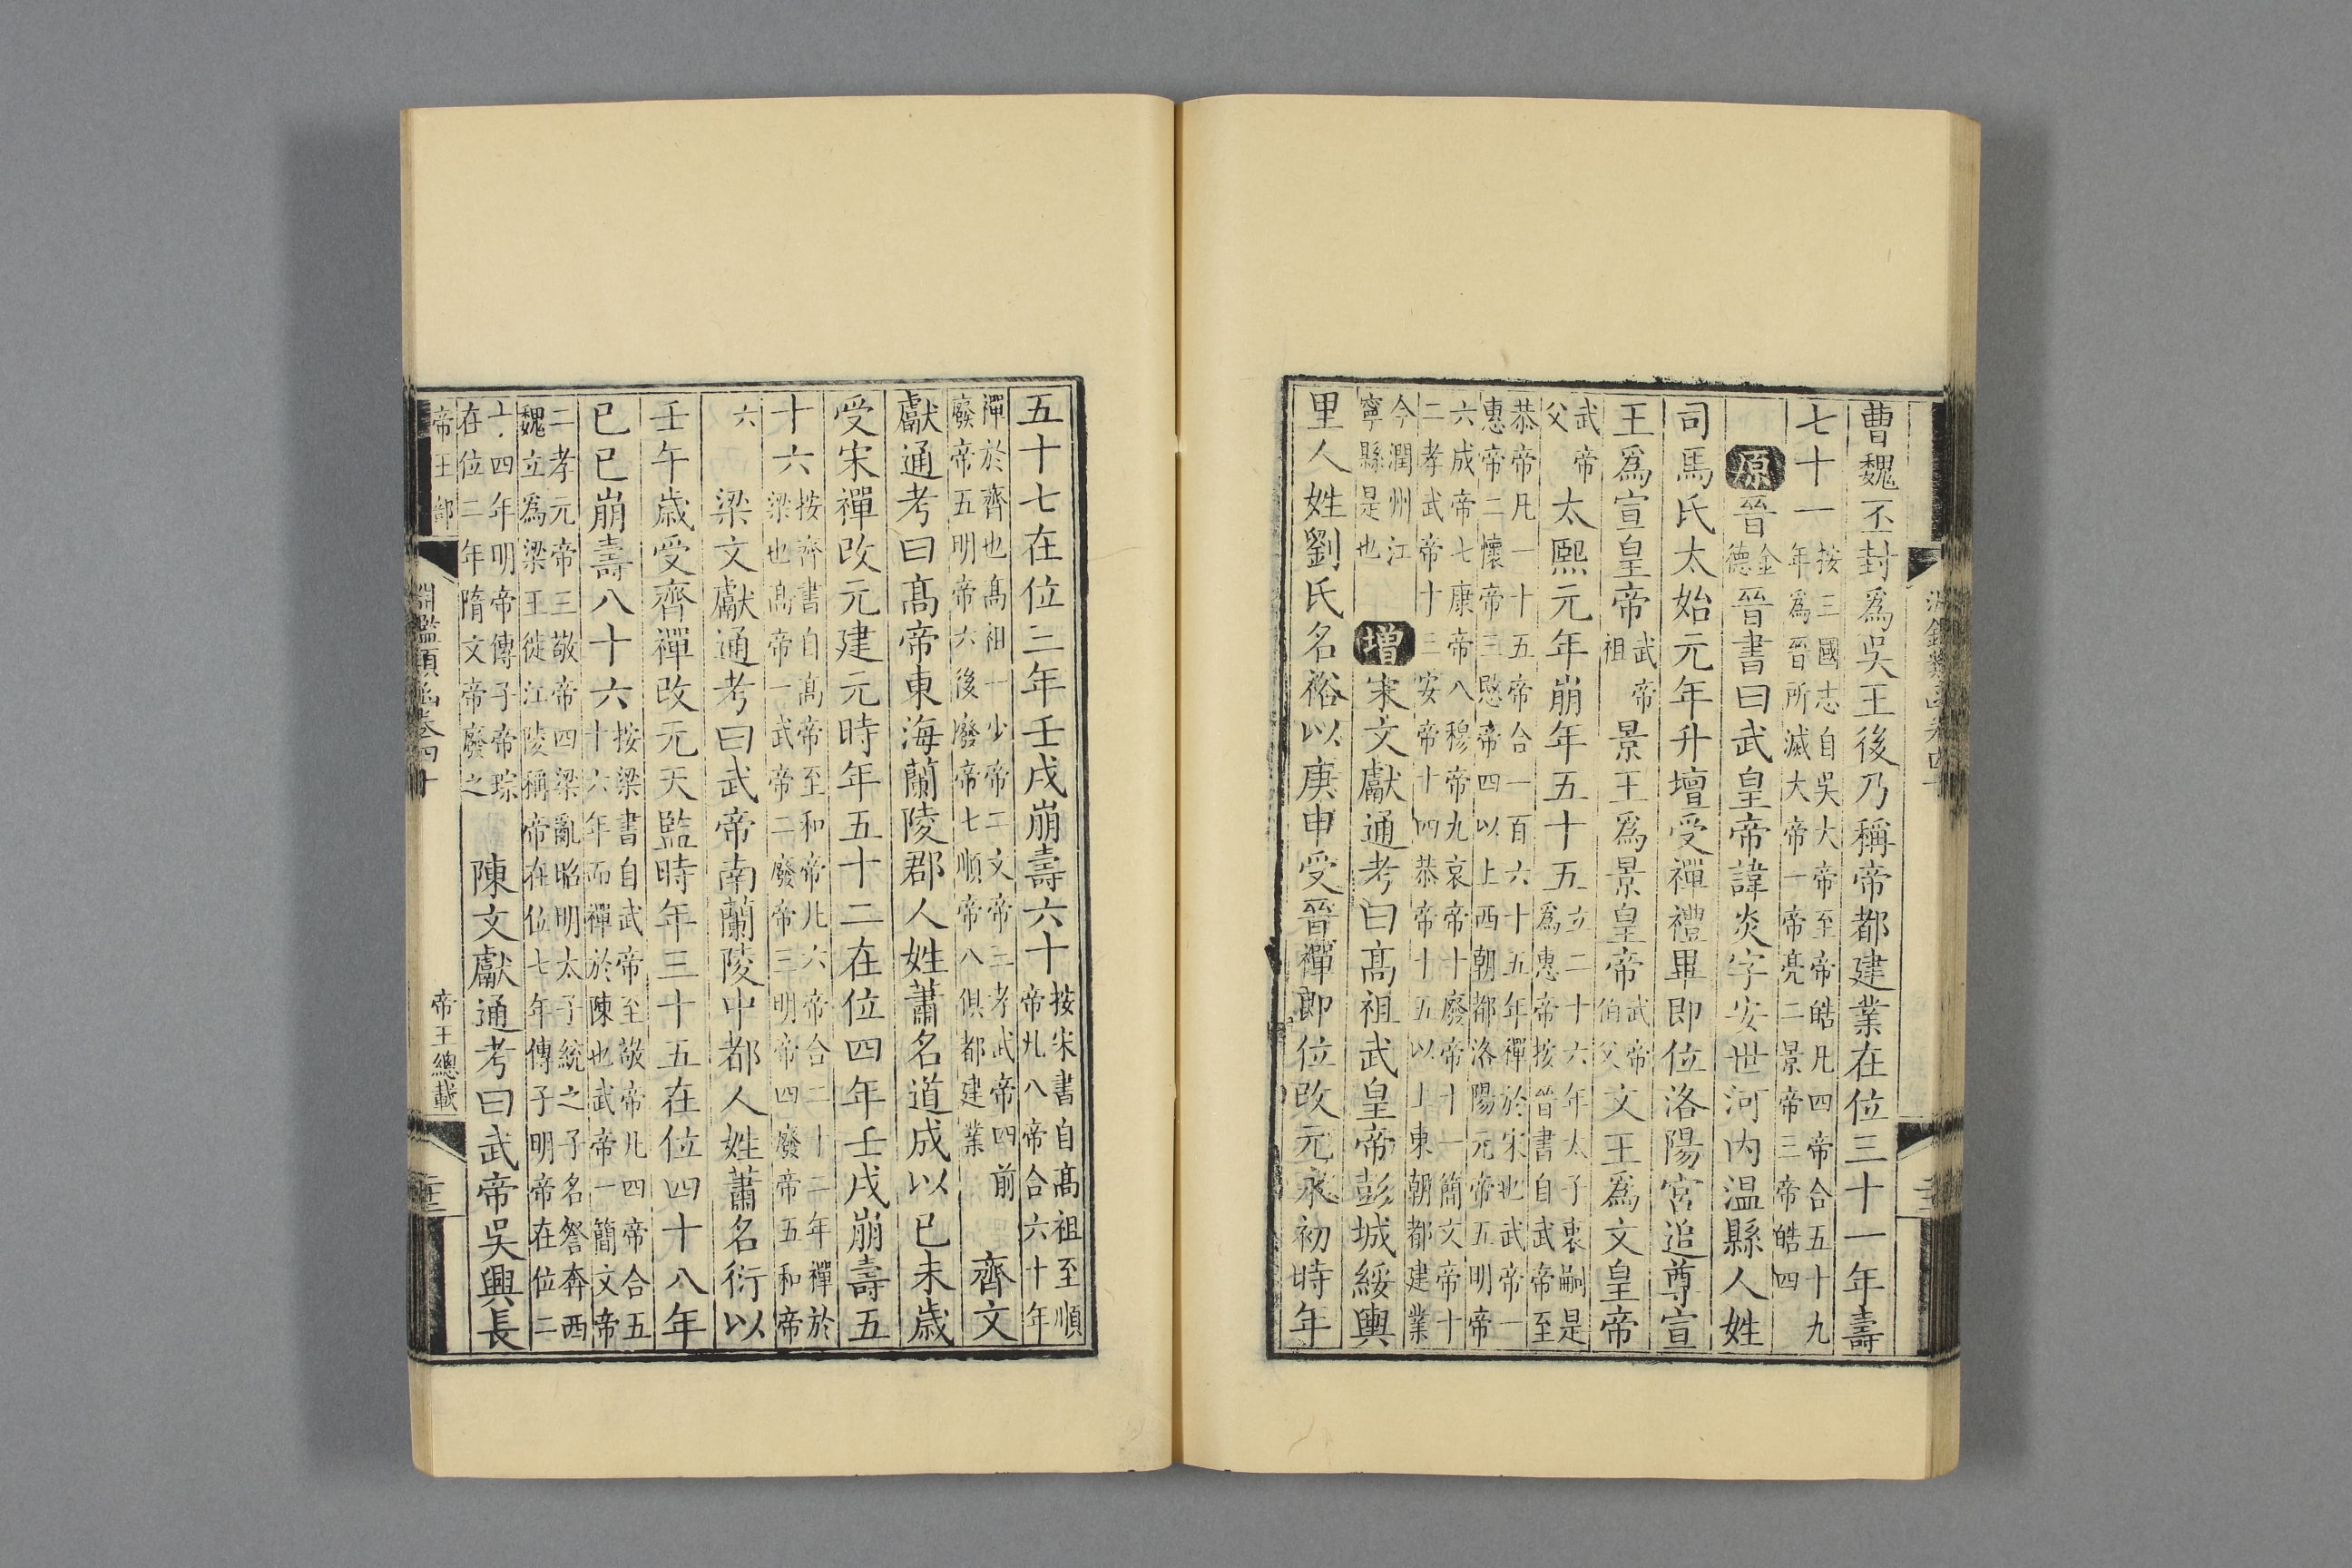 淵鑑類函卷四十
曹魏丕封為吳王後乃稱帝都建業在位三十一年壽
七十一按三國志自吳大帝至帝皓凡四帝合五十九年為晉所滅大帝一帝亮二景帝三帝皓四
原晉金德晉書曰武皇帝諱炎字安世河內温縣人姓
司馬氏太始元年升壇受禪禮畢即位洛陽宮追尊宣
王為宣皇帝武帝祖景王為景皇帝武帝伯父文王為文皇帝
武帝父太熙元年崩年五十五立二十六年太子衷嗣是為惠帝按晉書自武帝至
恭帝凡一十五帝合一百六十五年禪於宋也武帝一惠帝二懷帝三愍帝四以上西朝都洛陽元帝五明帝
六成帝七康帝八穆帝九哀帝十廢帝十一簡文帝十二孝武帝十三安帝十四恭帝十五以上東朝都建業
今潤州江寧縣是也增宋文獻通考曰髙祖武皇帝彭城綏輿
里人姓劉氏名裕以庚申受晉禪即位改元永初時年
五十七在位三年壬戌崩壽六十按宋書自髙祖至順帝凡八帝合六十年
禪於齊也髙祖一少帝二文帝三孝武帝四前廢帝五明帝六後廢帝七順帝八俱都建業齊文
獻通考曰髙帝東海蘭陵郡人姓蕭名道成以已未歳
受宋禪改元建元時年五十二在位四年壬戌崩壽五
十六按齊書自髙帝至和帝凡六帝合二十二年禪於梁也髙帝一武帝二廢帝三明帝四廢帝五和帝
六梁文獻通考曰武帝南蘭陵中都人姓蕭名衍以
壬午歳受齊禪改元天監時年三十五在位四十八年
已巳崩壽八十六按梁書自武帝至敬帝凡四帝合五十六年而禪於陳也武帝一簡文帝
二孝元帝三敬帝四梁亂昭明太子統之子名詧奔西魏立為梁王徙江陵稱帝在位七年傳子明帝在位二
十四年明帝傳子帝琮在位二年隋文帝廢之陳文獻通考曰武帝吳興長
帝王部
淵鑑類函卷四十
帝王總載